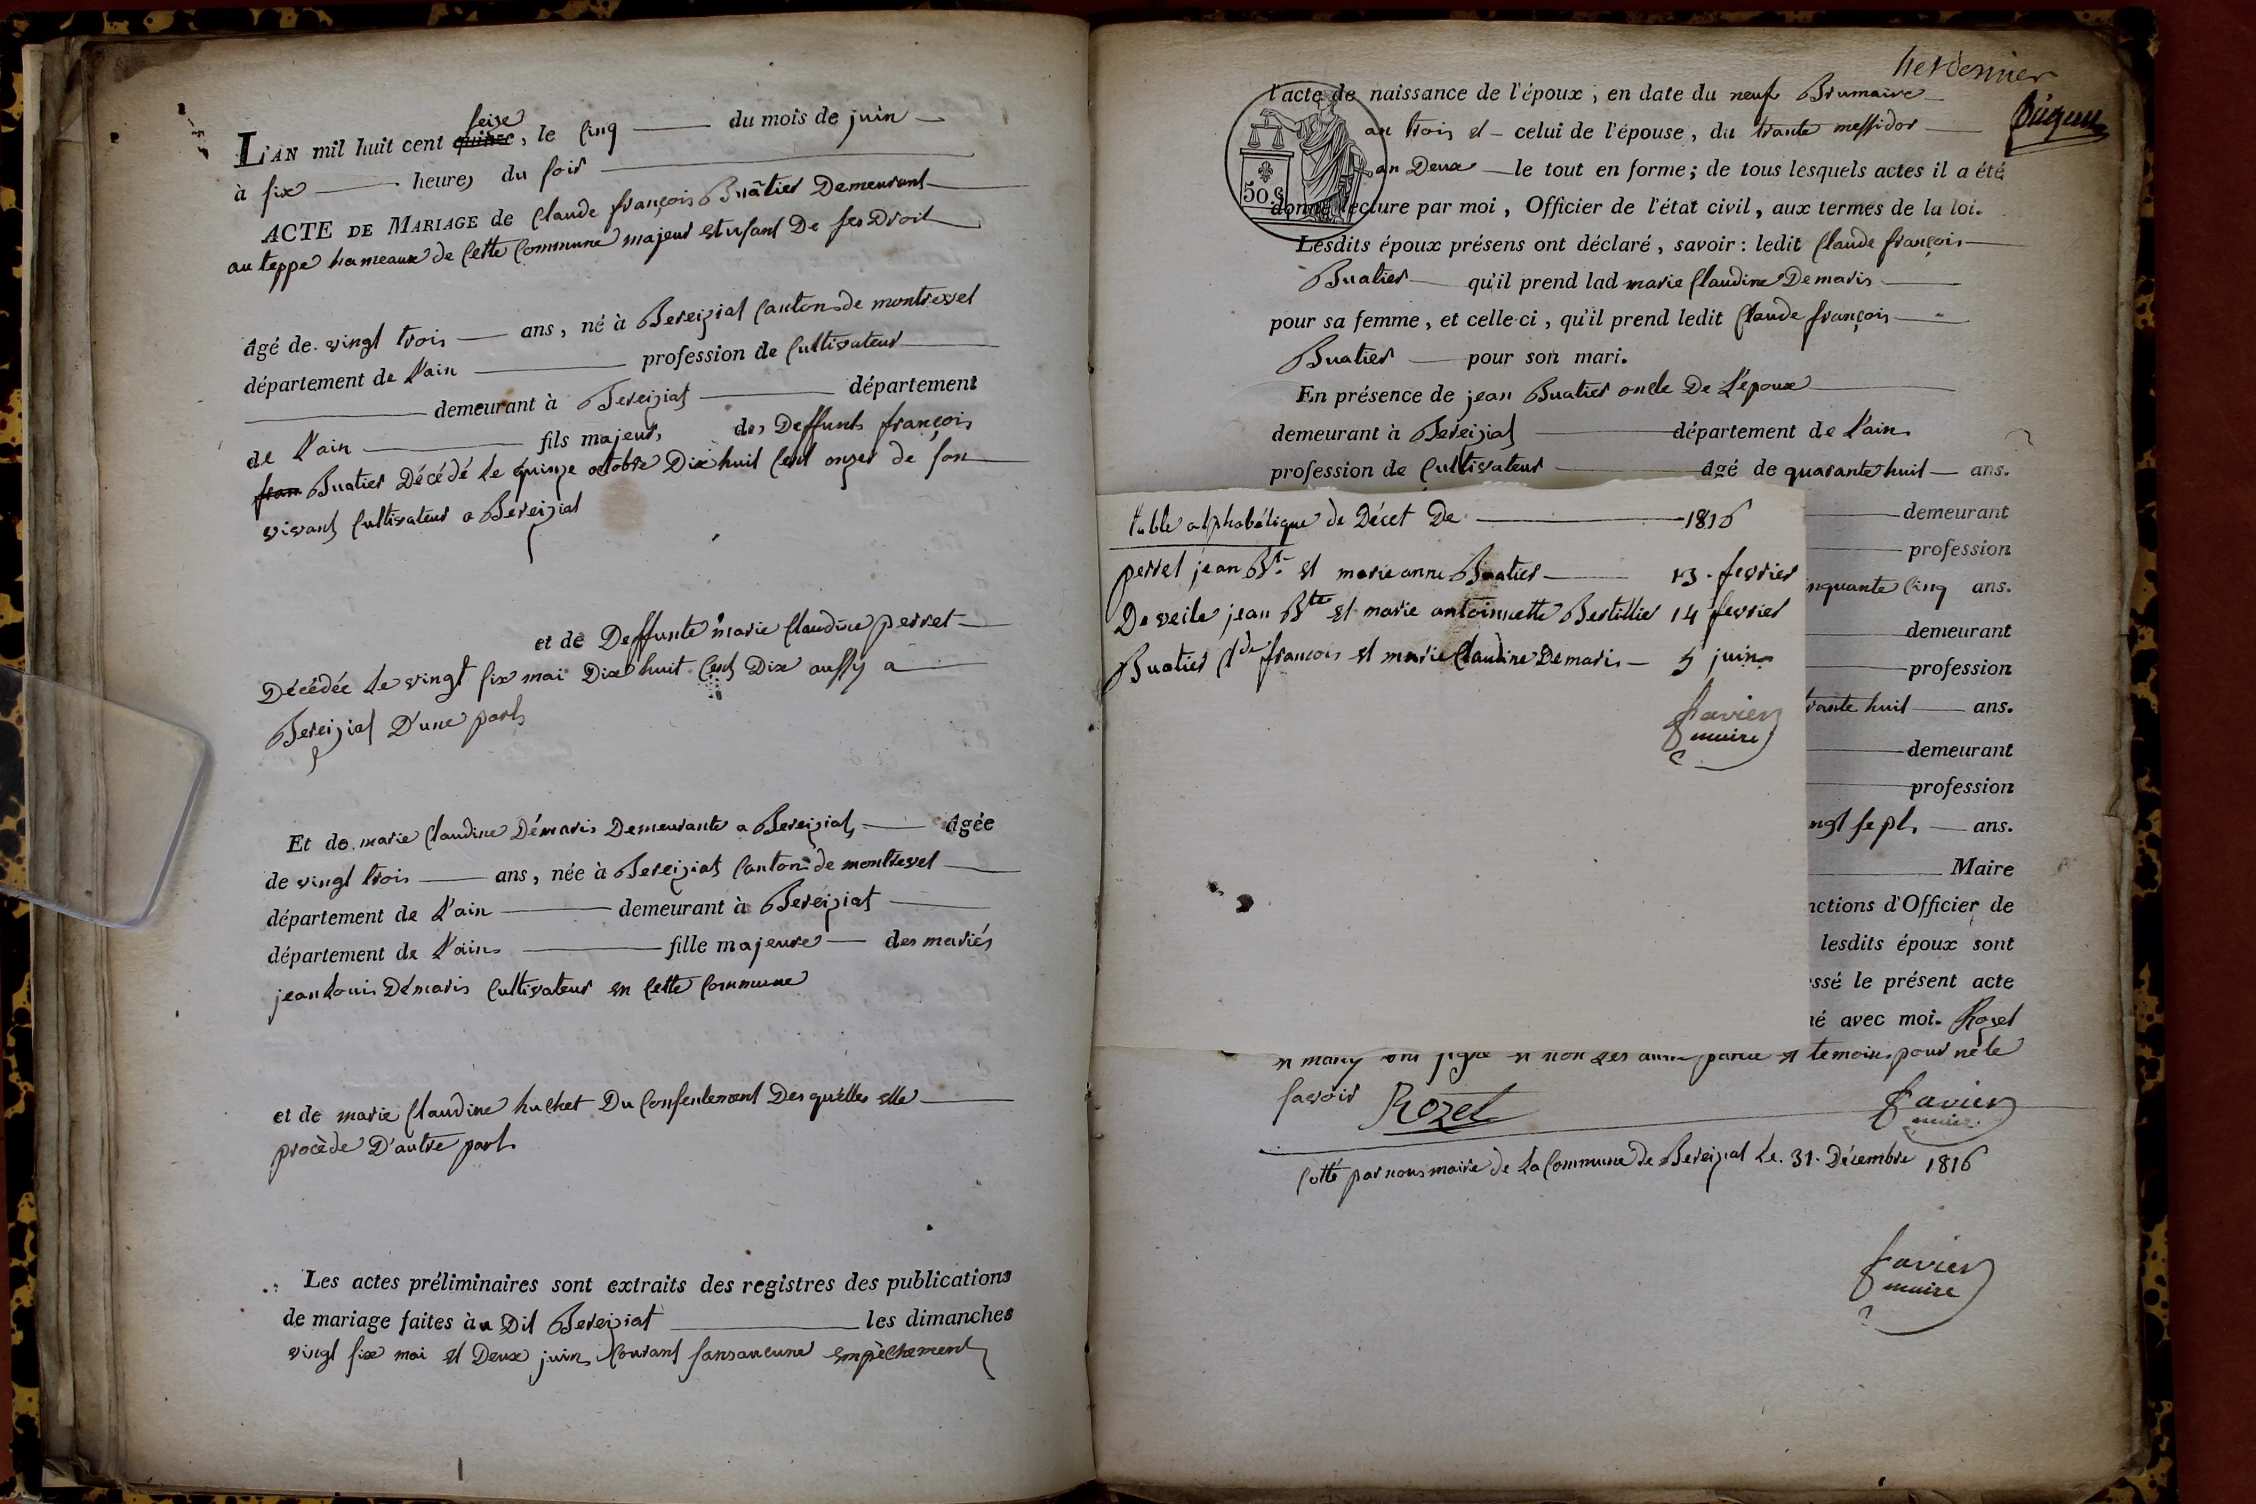 L'AN mil huit cent quinze seize, le cinq du mois de juin
à six heures du soir
ACTE DE MARIAGE de Claude françois Buâtier Demeurant
au teppe hameaux de Cette Commune majeur et usant De ses Droit
âgé de vingt trois ans, né à Bereiziat Canton de montrevel
département de L'ain profession de Cultivateur
demeurant à Bereiziat département
de L'ain fils majeur, des Deffunts françois
fran Buatier Décédé Le quinze octobre Dix huit Cent onze de son
vivant Cultivateur a Bereiziat
et de Deffunte marie Claudine perret
Décédée Le vingt six mai Dix huit Cent Dix aussy a
Bereiziat D'une part
Et de marie Claudine Démaris Demeurante a Bereiziat âgée
de vingt trois ans, née à Bereiziat Canton de montrevel
département de L'ain demeurant à Bereiziat
département de L'ain fille majeure des mariés
jean Louis Démaris Cultivateur en Cette Commune
et de marie Claudine huchet Du Consentement Des quelles elle
procède D'autre part
Les actes préliminaires sont extraits des registres des publications
de mariage faites à Dit Bereiziat les dimanches
vingt six mai et Deux juin Courant sans aucune empêchement
dernier
l'acte de naissance de l'époux, en date du neuf Brumaire
an trois et celui de l'épouse, du trante messidor
an Deux le tout en forme; de tous lesquels actes il a été
50 c
donné lecture par moi, Officier de l'état civil, aux termes de la loi.
Lesdits époux présens ont déclaré, savoir: ledit Claude françois
Buatier qu'il prend lad marie Claudine Demaris
pour sa femme, et celle-ci, qu'il prend ledit Claude françois
Buatier pour son mari.
En présence de jean Buatier oncle De L'époux
demeurant à Bereiziat département de L'ain
profession de Cultivateur âgé de quarante huit ans.
table alphabétique de Décet De 1816
perret jean Bte et marie anne Buatier 13 fevrier
Deveile jean Bte et marie antoinette Bertillier 14 fevrier
Buatier Cde francois et marie Claudine Demaris 5 juin
favier
maire
demeurant
profession
nquante Cinq ans.
demeurant
profession
rante huit ans.
demeurant
profession
ngt sept ans.
Maire
nctions d'Officier de
lesdits époux sont
ssé le présent acte
né avec moi. Rozet
temoins pour ne le
savoir Rozet favier
maire
Cotté par nous maire de La Commune de Bereiziat Le 31 Décembre 1816
favier
maire